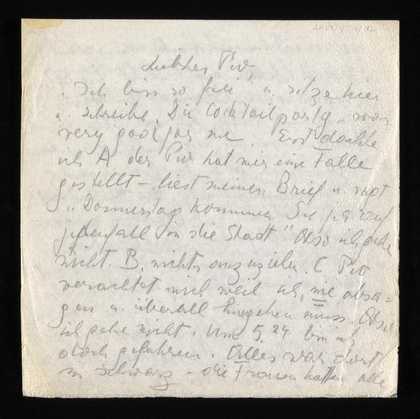 Liebes Piv,
Ich bin so frei, u. sitze hier
u. schreibe. Die Cocktailparty war
very good for me Erst dachte
ich A der Piv hat mir eine Falle
gestellt – liest meinen Brief u. sagt
„Donnerstag kommen Sie
jedenfalls in die Stadt" Also ich gehe
nicht B. nichts anzuziehen. C Piv
verachtet mich weil ich
u. überall hingehen muss. Also
ich gehe nicht. Um 5,24 bin ich
doch gefahren. Alles war dort
in Schwarz – die Frauen hatten alle